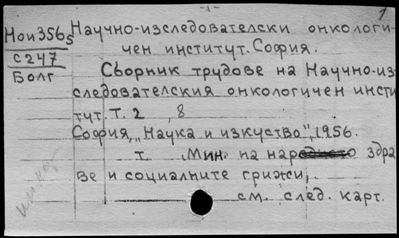 -1-
1
Нои356б Научно-изследователски онкологи-
С247 чен институт. София.
Болг Сборник трудове на Научно-из-
следователския онкологичен инсти
тут. Т. 2 , 8
София, "Наука и изкуство", 1956.
т. Мин. на народното здра
ве и социалните грижи,
см. след. карт.